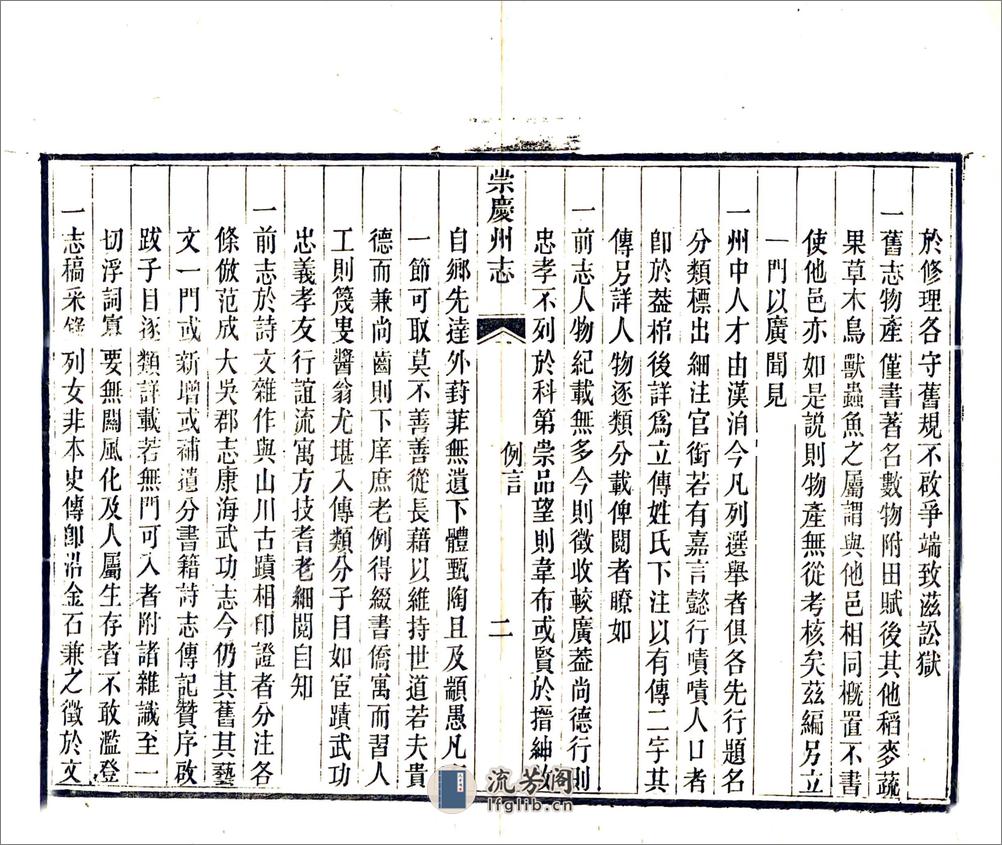 於修理各守舊規不啟爭端致滋訟獄
一舊志物產僅書著名數物附田賦後其他稻麥蔬
果草木鳥獸蟲魚之屬謂與他邑相同概置不書
使他邑亦如是說則物產無從考核矣茲編另立
一門以廣聞見
一州中人才由漢洎今凡列選舉者俱各先行題名
分類標出細注官銜若有嘉言懿行嘖嘖人口者
卽於蓋棺後詳爲立傳姓氏下注以有傳二字其
傳另詳人物逐類分載俾閱者瞭如
一前志人物紀載無多今則徵收較廣蓋尚德行則
忠孝不列於科第崇品望則韋布或賢於搢紳故
崇慶州志
例言
二
自鄉先達外葑菲無遺下體甄陶且及顓愚凡
一節可取莫不善善從長藉以維持世道若夫貴
德而兼尚齒則下庠庶老例得綴書僑寓而習人
工則篾叟醬翁尤堪入傳類分子目如宦蹟武功
忠義孝友行誼流寓方技耆老細閱自知
一前志於詩文雜作與山川古蹟相印證者分注各
條倣范成大吳郡志康海武功志今仍其舊其藝
文一門或新增或補遺分書籍詩志傳記贊序啟
跋子目逐類詳載若無門可入者附諸雜識至一
切浮詞賔要無關風化及人屬生存者不敢濫登
一志稿采錄列女非本史傳卽沿金石兼之徵於文
流芳阁
lfglib.cn